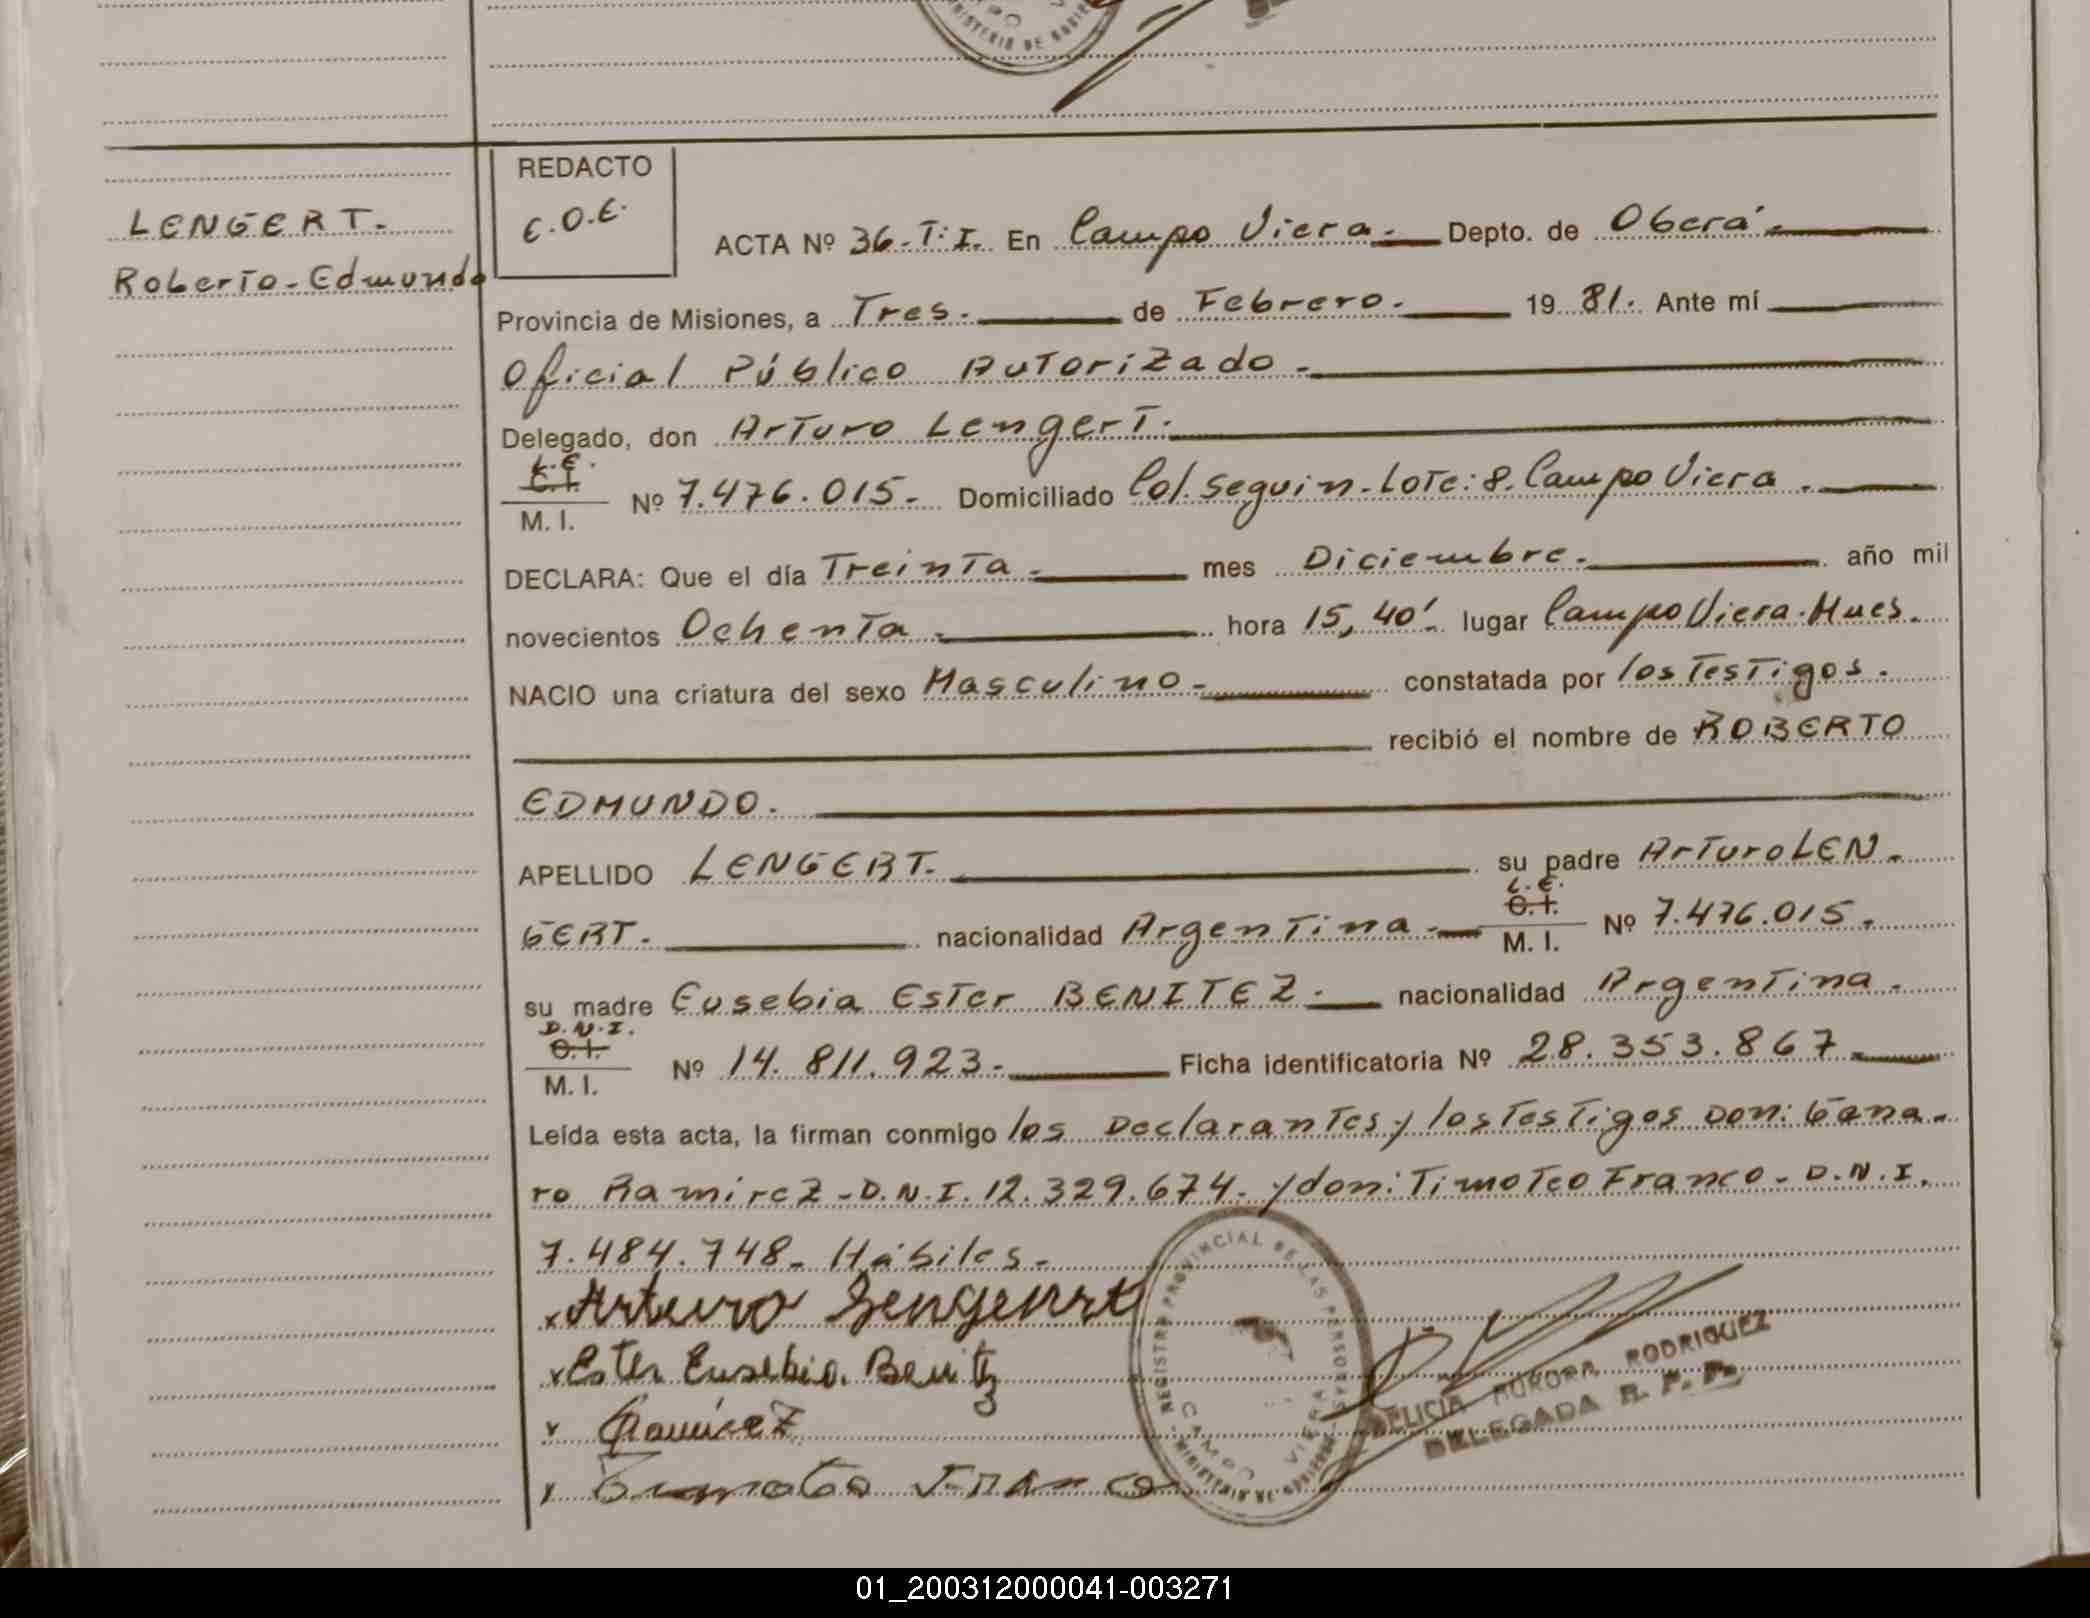 MINISTERIO DE GOBIER
LENGERT.
Roberto-Edmundo
REDACTO
E.O.E.
ACTA Nº 36-T.I. En Campo Viera.- Depto. de Oberá.-
Provincia de Misiones, a Tres.- de Febrero.- 19 81. Ante mí
Oficial Público Autorizado.-
Delegado, don Arturo Lengert.-
L.E.
C.I.
M. I. Nº 7.476.015.- Domiciliado Col. Seguin-Lote:8. Campo Viera.-
DECLARA: Que el día Treinta.- mes Diciembre.- año mil
novecientos Ochenta.- hora 15,40' lugar Campo Viera-Mnes.
NACIO una criatura del sexo Masculino.- constatada por los Testigos.
recibió el nombre de ROBERTO
EDMUNDO.
APELLIDO LENGERT.- su padre Arturo LEN-
GERT.- nacionalidad Argentina.- L.E. C.I. M. I. Nº 7.476.015.
su madre Eusebia Ester BENITEZ.- nacionalidad Argentina.
D.N.I.
C.I.
M. I. Nº 14.811.923.- Ficha identificatoria Nº 28.353.867.-
Leída esta acta, la firman conmigo los Declarantes y los Testigos Don: Gena-
ro Ramirez-D.N.I. 12.329.674.- y don: Timoteo Franco- D.N.I.
7.484.748- Hábiles.-
x Arturo Lengenrt
x Ester Eusebia Benitz
x GRamirez
x Timoteo Franco
REGISTRO PROVINCIAL DE LAS PERSONAS
MINISTERIO DE GOBIERNO
CAMPO VIERA
DELICIA AURORA RODRIGUEZ
DELEGADA R. P. P.
01_200312000041-003271